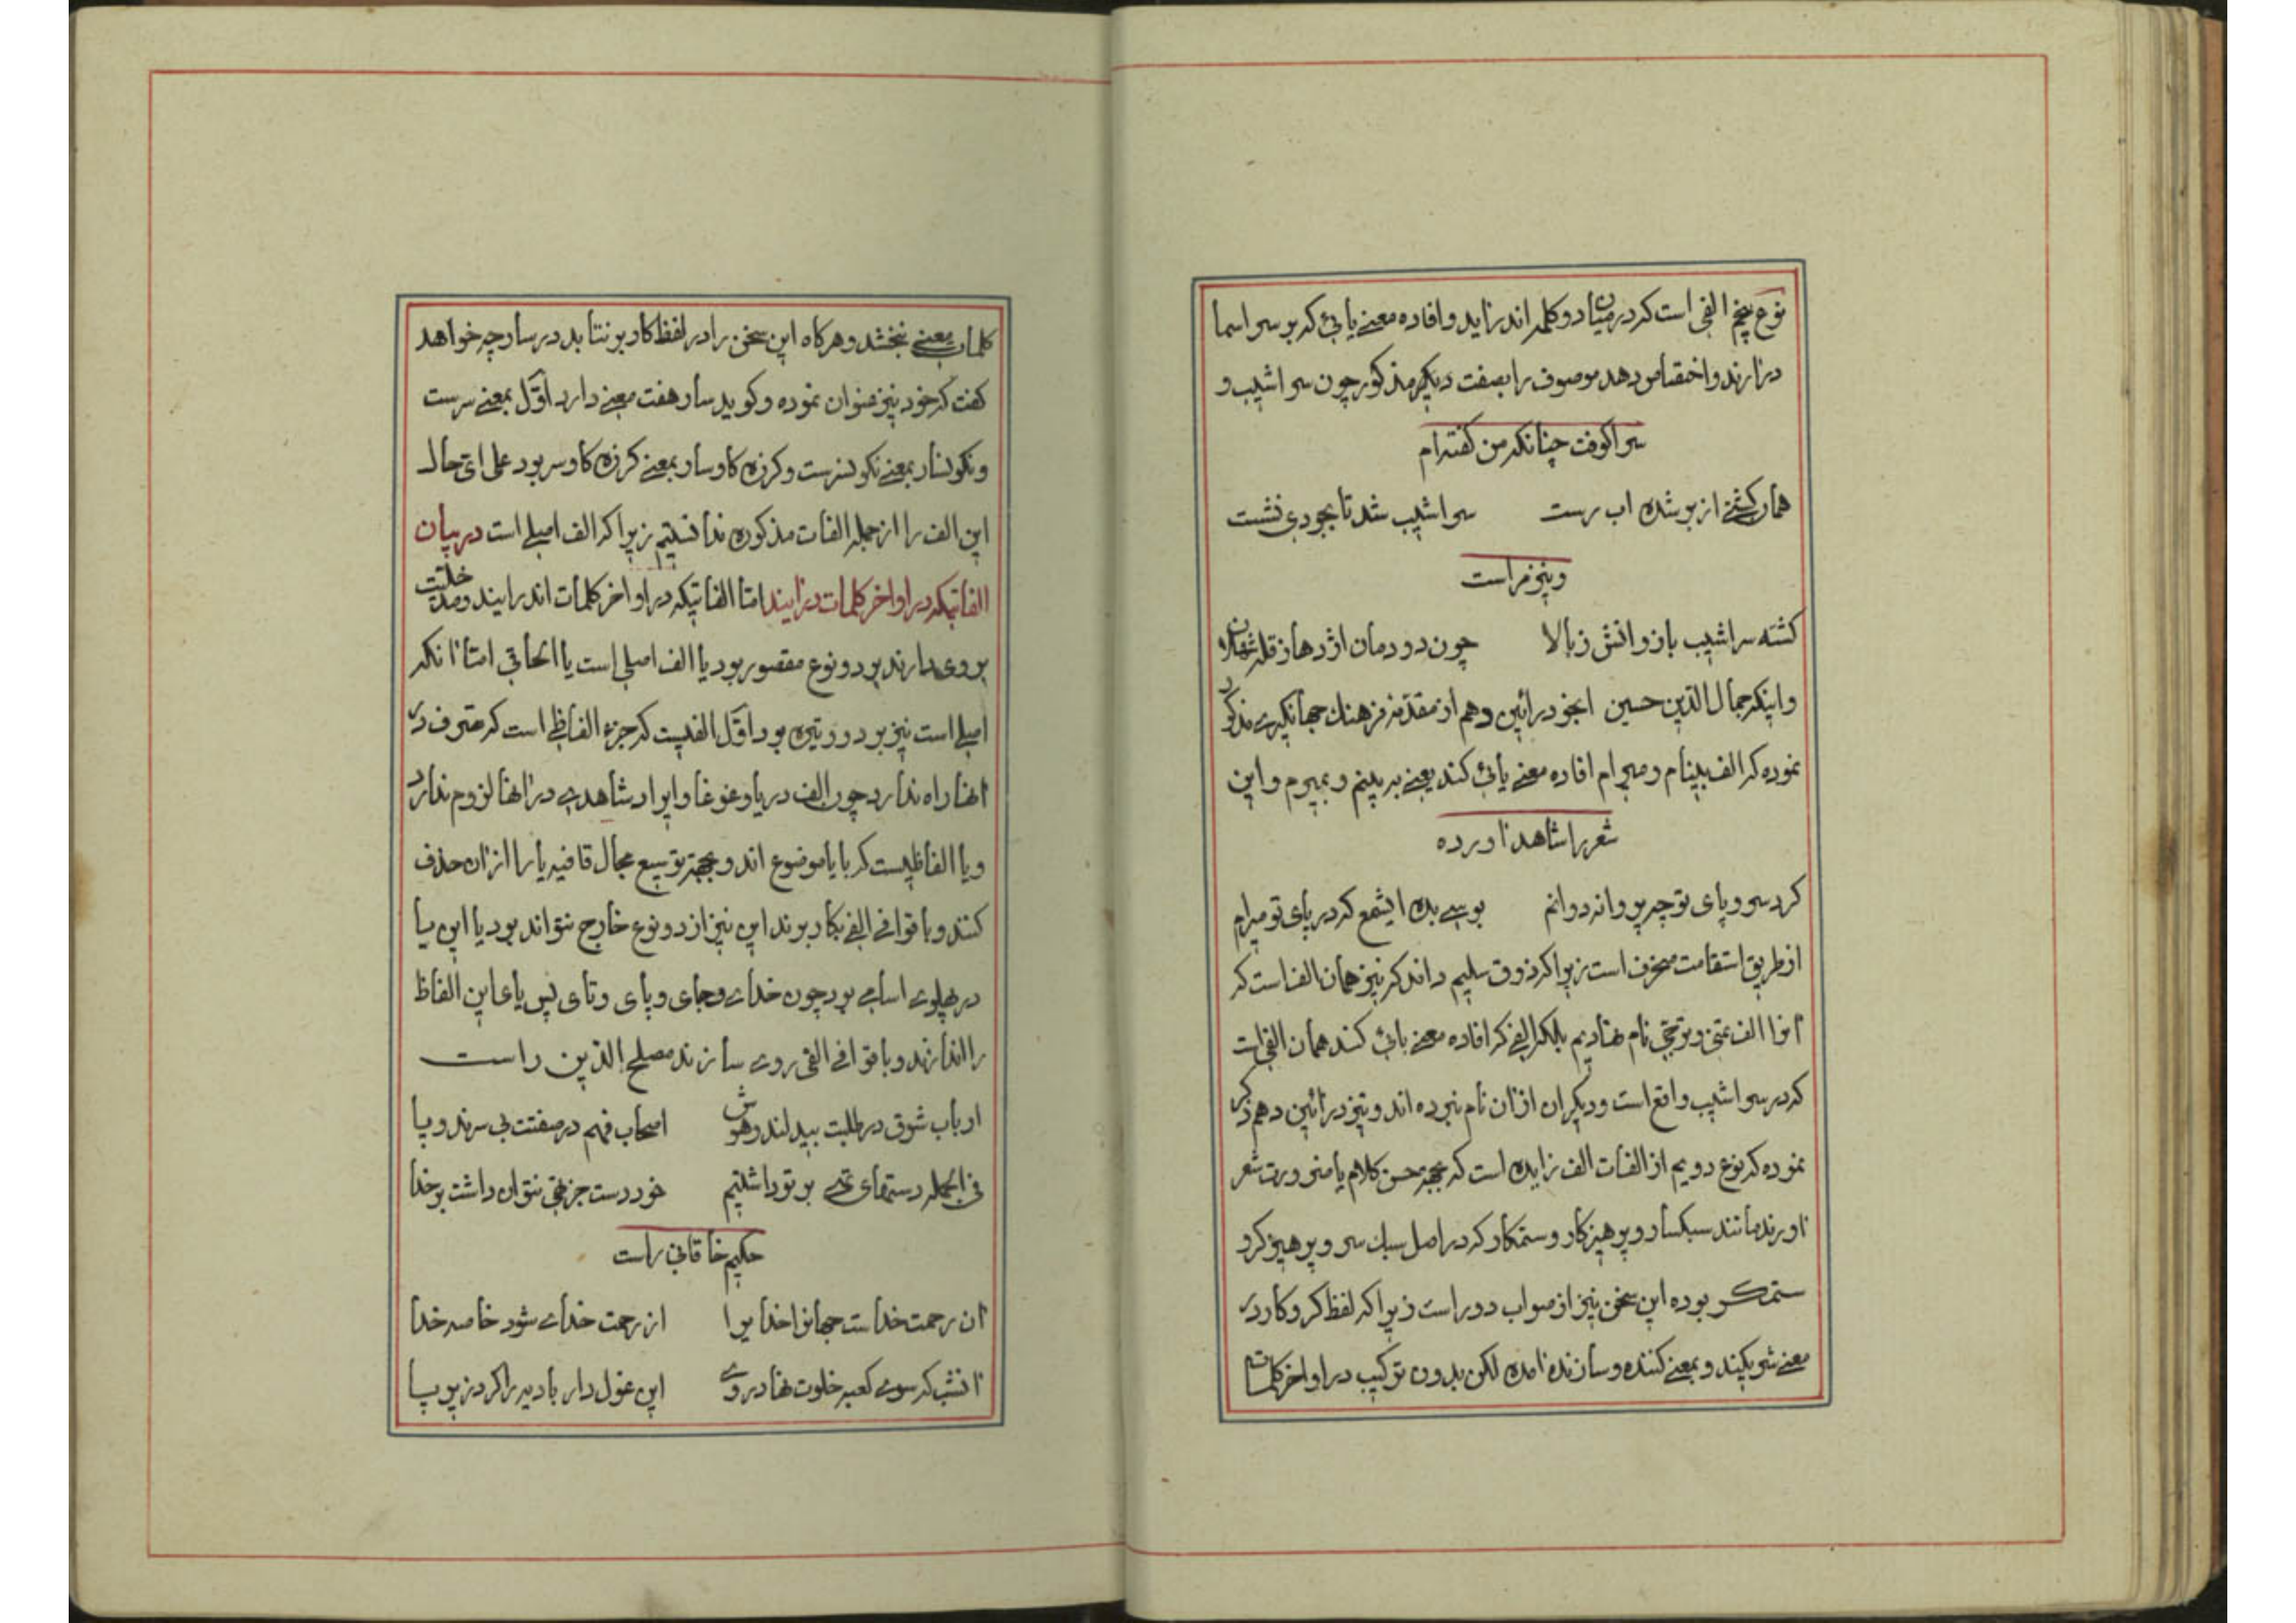 نوع پنجم الفی است که در میان دو کلمه اندر آید و افاده معنی یائی که بر سر اسما
در آرند و اختصاص دهد موصوف را بصفت دیگر مذکور چون سراشیب و
سراکوفت چنانکه من گفته‌ام
همان کشتی از بر شده اب رست سراشیب شد تا بجودی نشست
و نیز مراست
کشته سراشیب باز وانش ز بالا چون دو دمان اژدها ز قله ثهلان
و اینکه جمال الدین حسین انجو در ائین دهم از مقدمه فرهنک جهانکیری مذکور
نموده که الف بینام و میرام افاده معنی یائی کند یعنی به بینم و بمیرم و این
شعر را شاهد اورده
کرد سر و پای تو چو پروانه دوانم بوسی بده ایشمع که در پای تو میرام
از طریق استقامت منحرف است زیرا که ذوق سلیم داند که نیز همان الف است که
انرا الف تمنی و ترجی نام نهادیم بلکه الفی که افاده معنی یائی کند همان الفی است
که در سراشیب واقع است و دیکران از ان نام نبرده اند و نیز در ائین دهم ذکر
نموده که نوع دویم از الفات الف زایده است که بجهة حسن کلام یا ضرورت شعر
اورند مانند سبکسار و پرهیزکار و ستمکار که در اصل سبک سر و پرهیزکر و
ستمکر بوده این سخن نیز از صواب دور است زیرا که لفظ کر و کار در
معنی شریکند و بمعنی کننده و سازنده امده لکن بدون ترکیب در اواخر کلمات
کلمات معنی نبخشد و هر کاه این سخن را در لفظ کار بر نتابد در سار چه خواهد
کفت که خود نیز عنوان نموده و کوید سار هفت معنی دارد اول بمعنی سرست
و نکونسار بمعنی نکونسرست و کرزه کاوسار بمعنی کرزه کاوسر بود علی ای حال
این الف را از جمله الفات مذکوره ندانستیم زیرا که الف اصلی است در بیان
الفاتیکه در اواخر کلمات در ایند اما الفاتیکه در اواخر کلمات اندر ایند و مدخلیت
بروی دارند بر دو نوع مقصور بود یا الف اصلی است یا الحاقی اما انکه
اصلی است نیز بر دو وتیره بود اول الفیست که جزء الفاظی است که تصرف در
انها راه ندارد چون الف دریا و غوغا و ایراد شاهدی در انها لزوم ندارد
و یا الفاظیست که با یا موضوع اند و بجهة توسیع مجال قافیه یا را از ان حذف
کنند و با قوافی الفی بکار برند این نیز از دو نوع خارج نتواند بود یا این یا
در پهلوی اسامی بود چون خدای و جای و پای و تای پس یای این الفاظ
را اندازند و با قوافی الفی روی سازند مصلح الدین راست
ارباب شوق در طلبت بیدلند و هوش اصحاب فهم در صفتت بی سرند و پا
فی الجمله دستهای تهی بر تو داشتیم خود دست جز تهی نتوان داشت بر خدا
حکیم خاقانی راست
ان رحمت خداست جهانرا خدایرا از رحمت خدای شود خاصه خدا
انشب که سوی کعبه خلوت نهاد روی این غول دار بادیه را کرد زیر پا